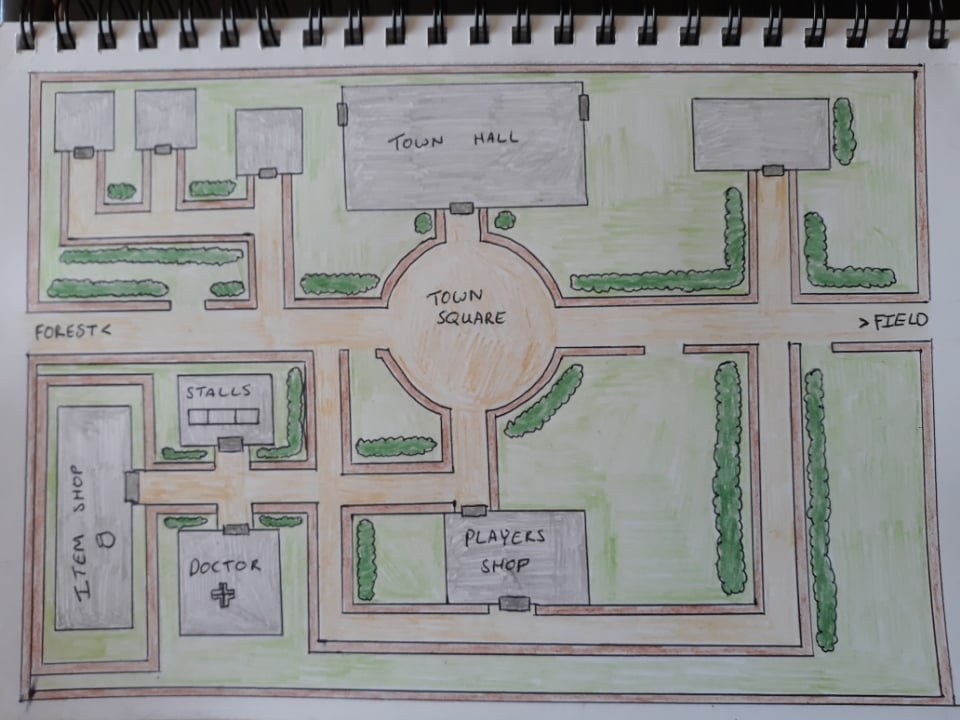 TOWN HALL
TOWN
SQUARE
FOREST<
>FIELD
STALLS
ITEM SHOP
PLAYERS
SHOP
DOCTOR